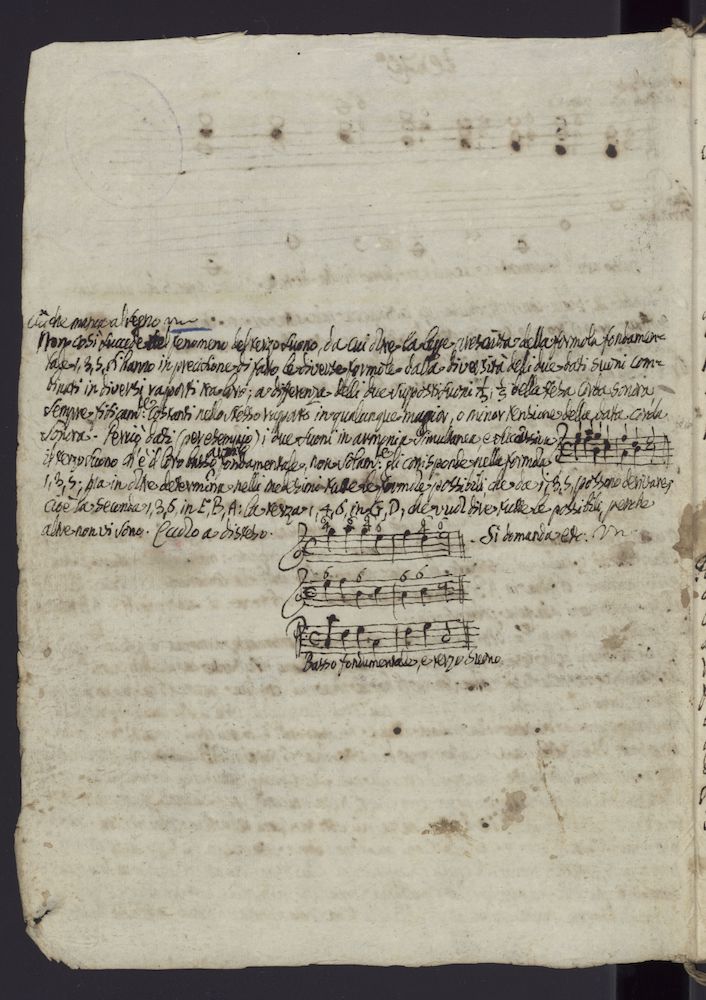 che manca al segno
Non così succede nel fenomeno del terzo suono, da cui oltre la legge prescritta della formola fondamen-
tale 1, 3, 5, si hanno in precisione di fatto le diverse formole dalla diversità delli due dati suoni com-
binati in diversi rapporti tra loro; a differenza delli due supposti suoni 1/3, 1/5 della stessa Corda Sonora
sempre fisicam.te costanti nello stesso rapporto in qualunque maggior, o minor tensione della data Corda
Sonora. Perciò dati (per esempio) i due suoni in armonia simultanea e successiva
il terzo suono ch'è il loro basso armco fondamentale, non solam.te gli corrisponde nella formola
1, 3, 5; ma in oltre determina nelli medesimi tutte le formole possibili che da 1, 3, 5, possono derivare;
cioè la seconda 1, 3, 6, in E, B, A: la terza 1, 4, 6, in G, D; che vuol dire tutte le possibili, perche
altre non vi sono. Eccolo a disteso.
Si domanda etc.
6 6 6
Basso fondamentale, e terzo suono